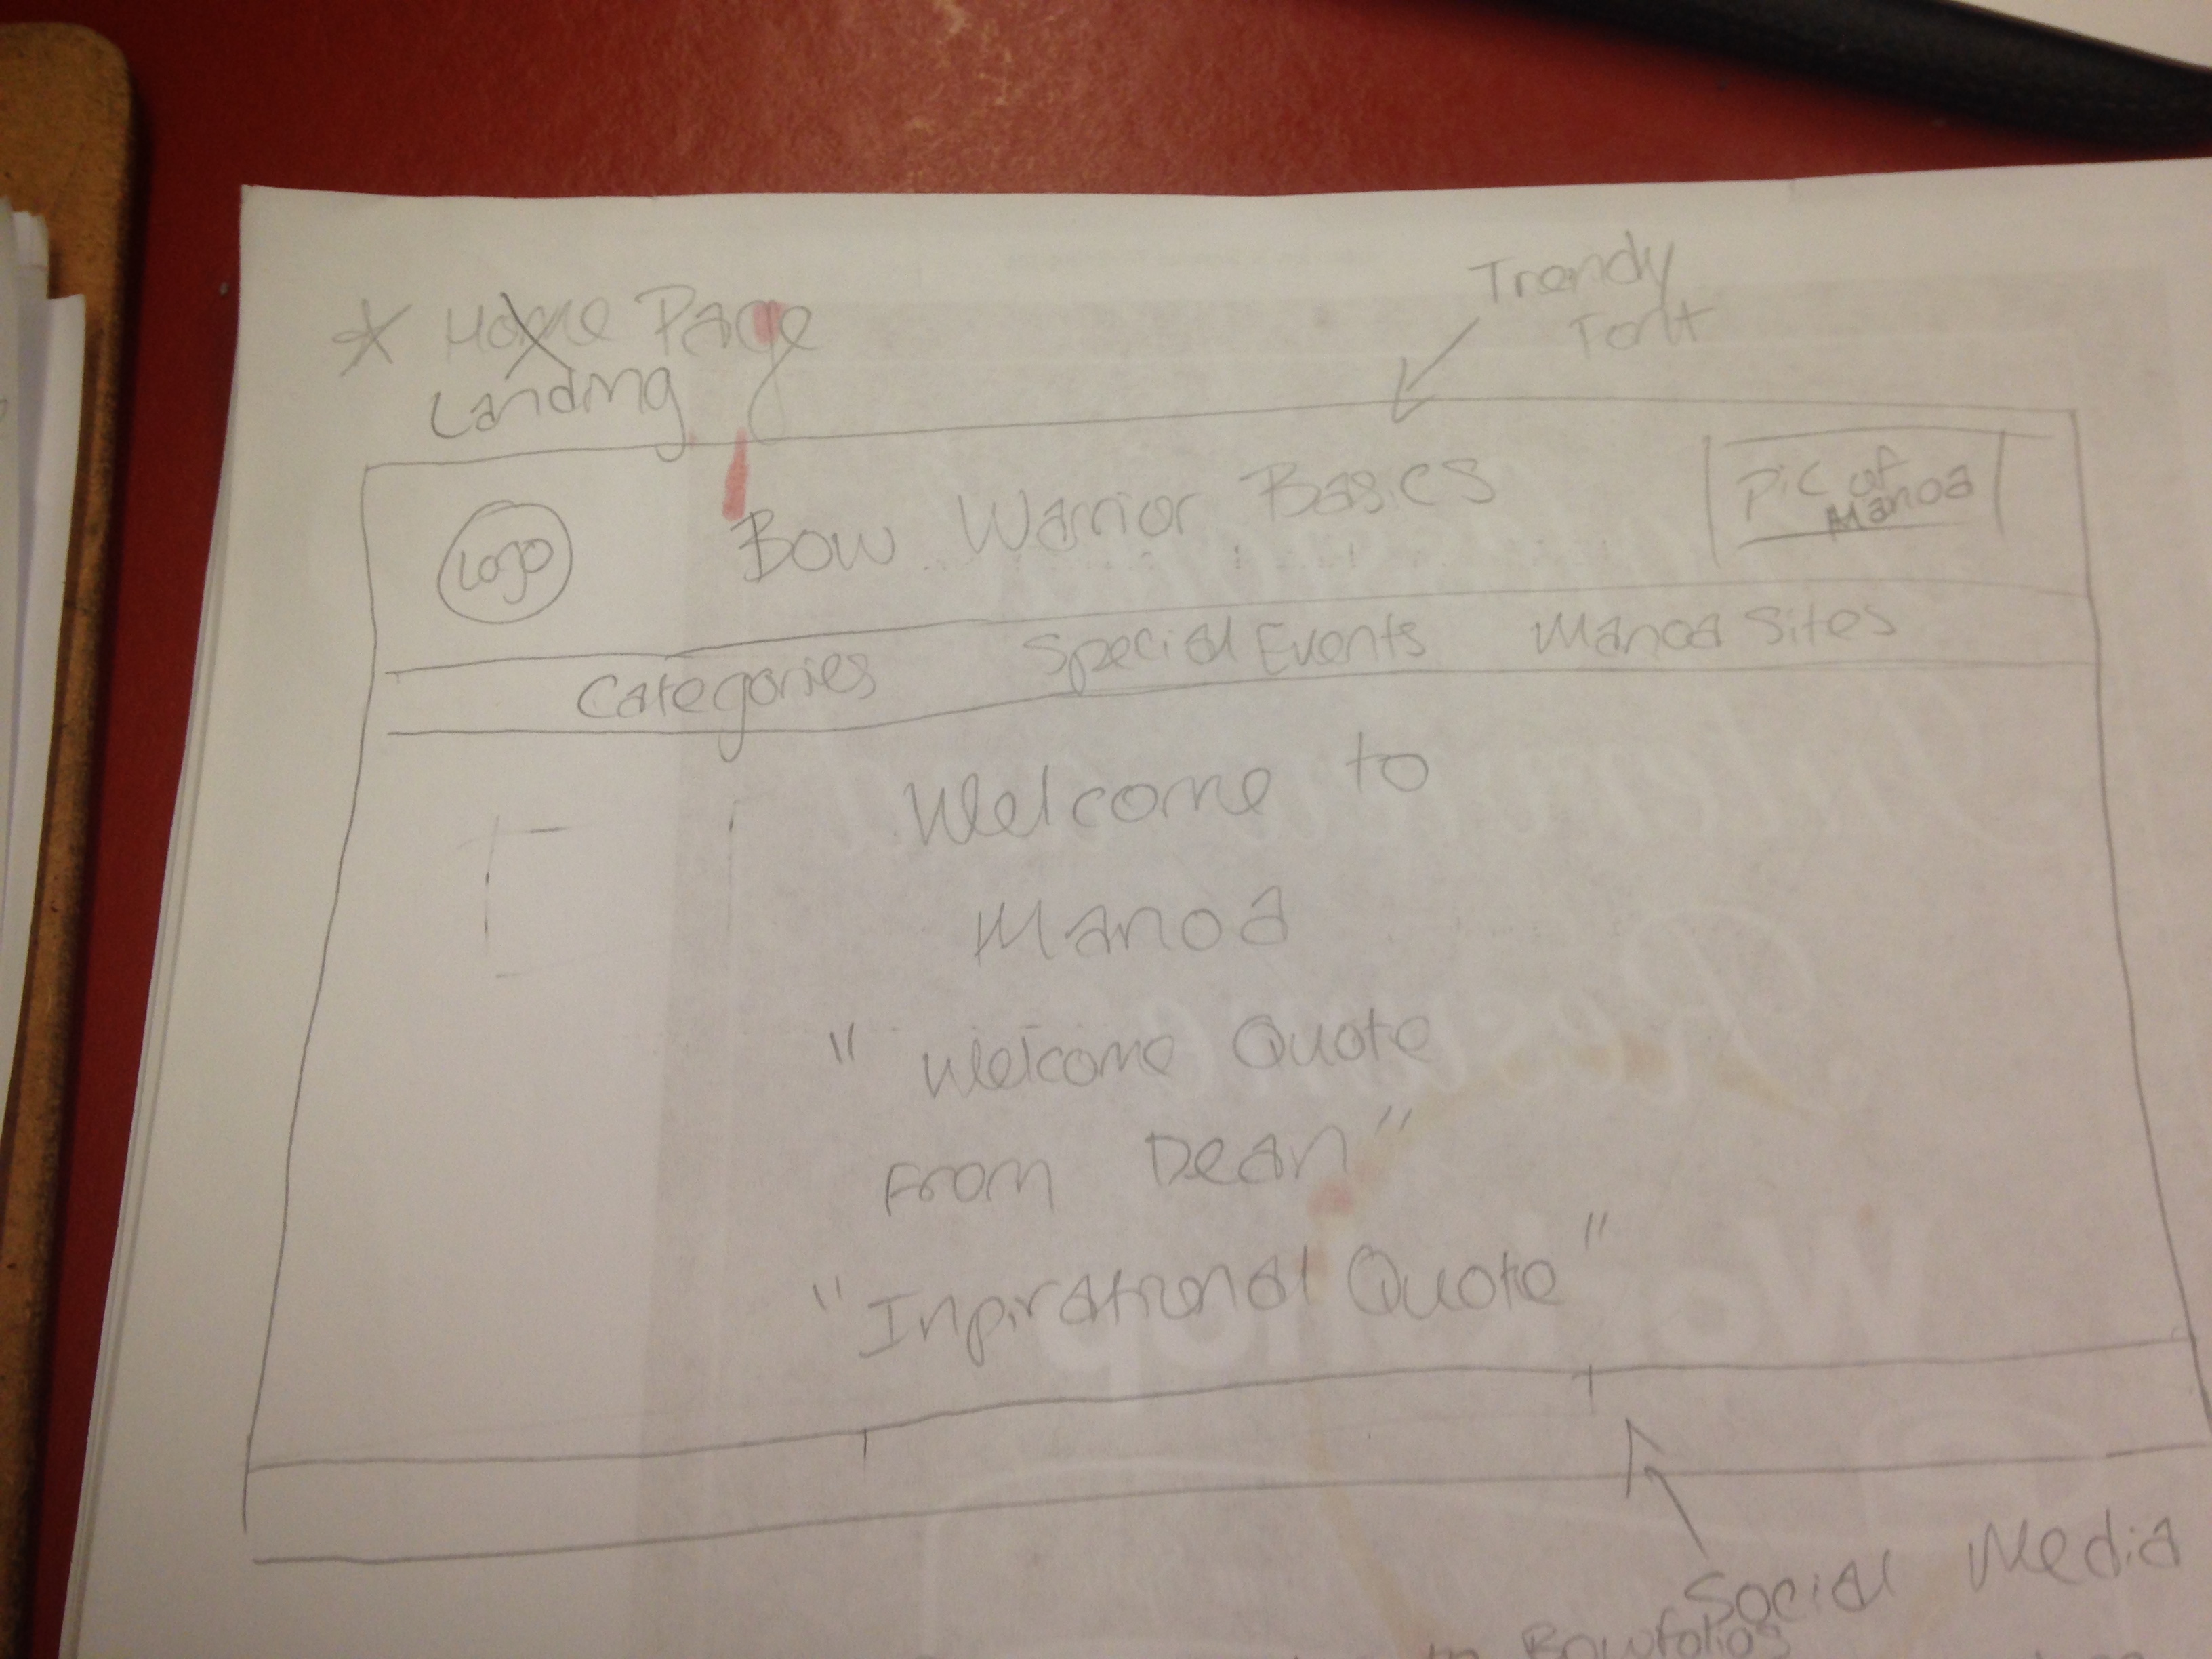 * Home Page
Landing
Trendy
Font
Logo
Bow Warrior Basics
Pic of
Manoa
Categories Special Events Manoa Sites
Welcome to
Manoa
" Welcome Quote
From Dean"
"Inpirational Quote"
Social Media
to Bowfolios